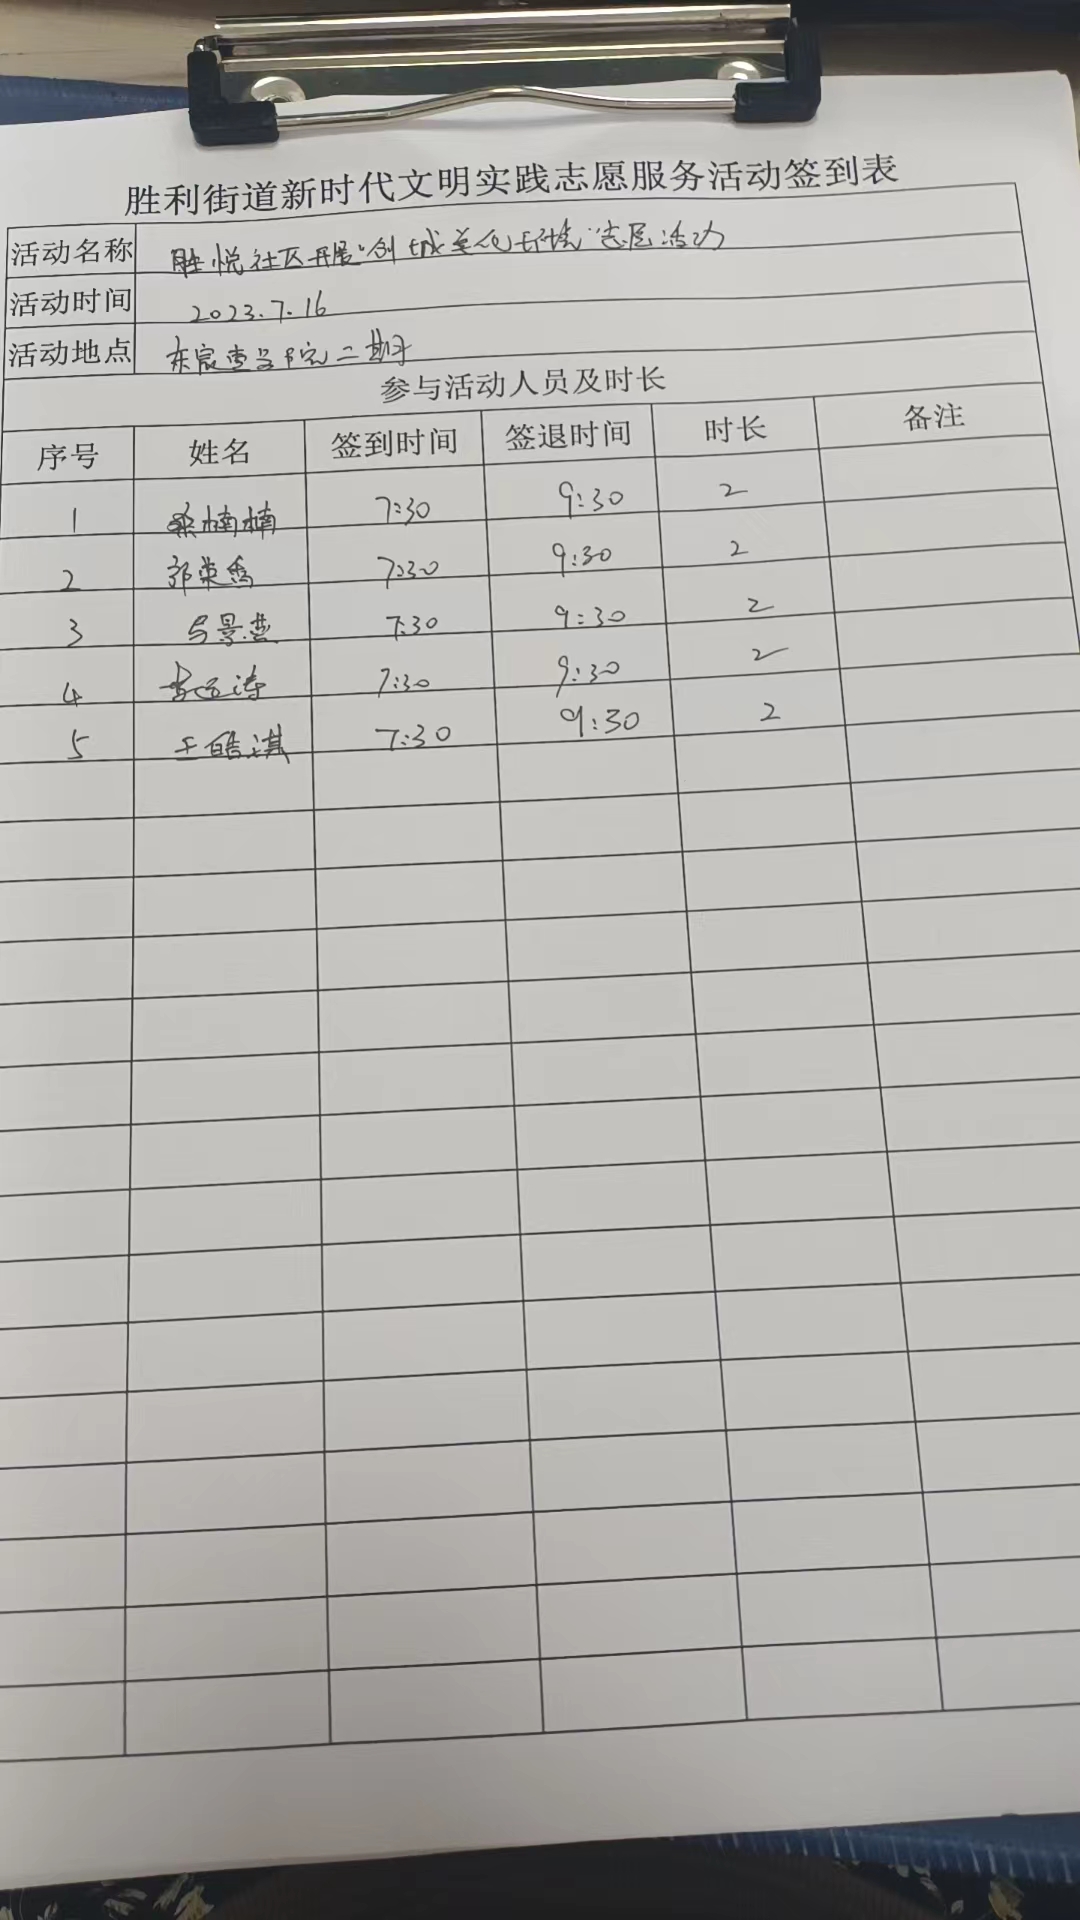 胜利街道新时代文明实践志愿服务活动签到表
活动名称 胜悦社区开展"创城美化环境"志愿活动
活动时间 2023.7.16
活动地点 东宸壹号院二期
参与活动人员及时长
序号 姓名 签到时间 签退时间 时长 备注
1 楠楠 7:30 9:30 2
2 郭荣香 7:30 9:30 2
3 马景燕 7:30 9:30 2
4 7:30 9:30 2
5 王皓淇 7:30 9:30 2